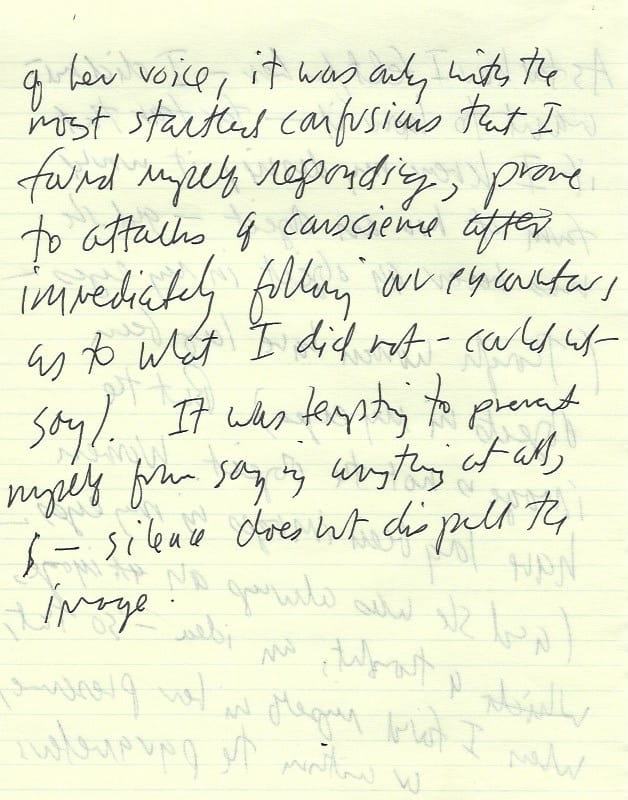 of her voice, it was only with the
most startled confusions that I
found myself responding, prone
to attacks of conscience after
immediately following our encounters
as to what I did not – could not –
say). It was tempting to prevent
myself from saying anything at all,
– silence does not dispell the
image.